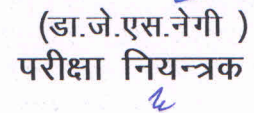 (डा.जे.एस.नेगी )
परीक्षा नियन्त्रक